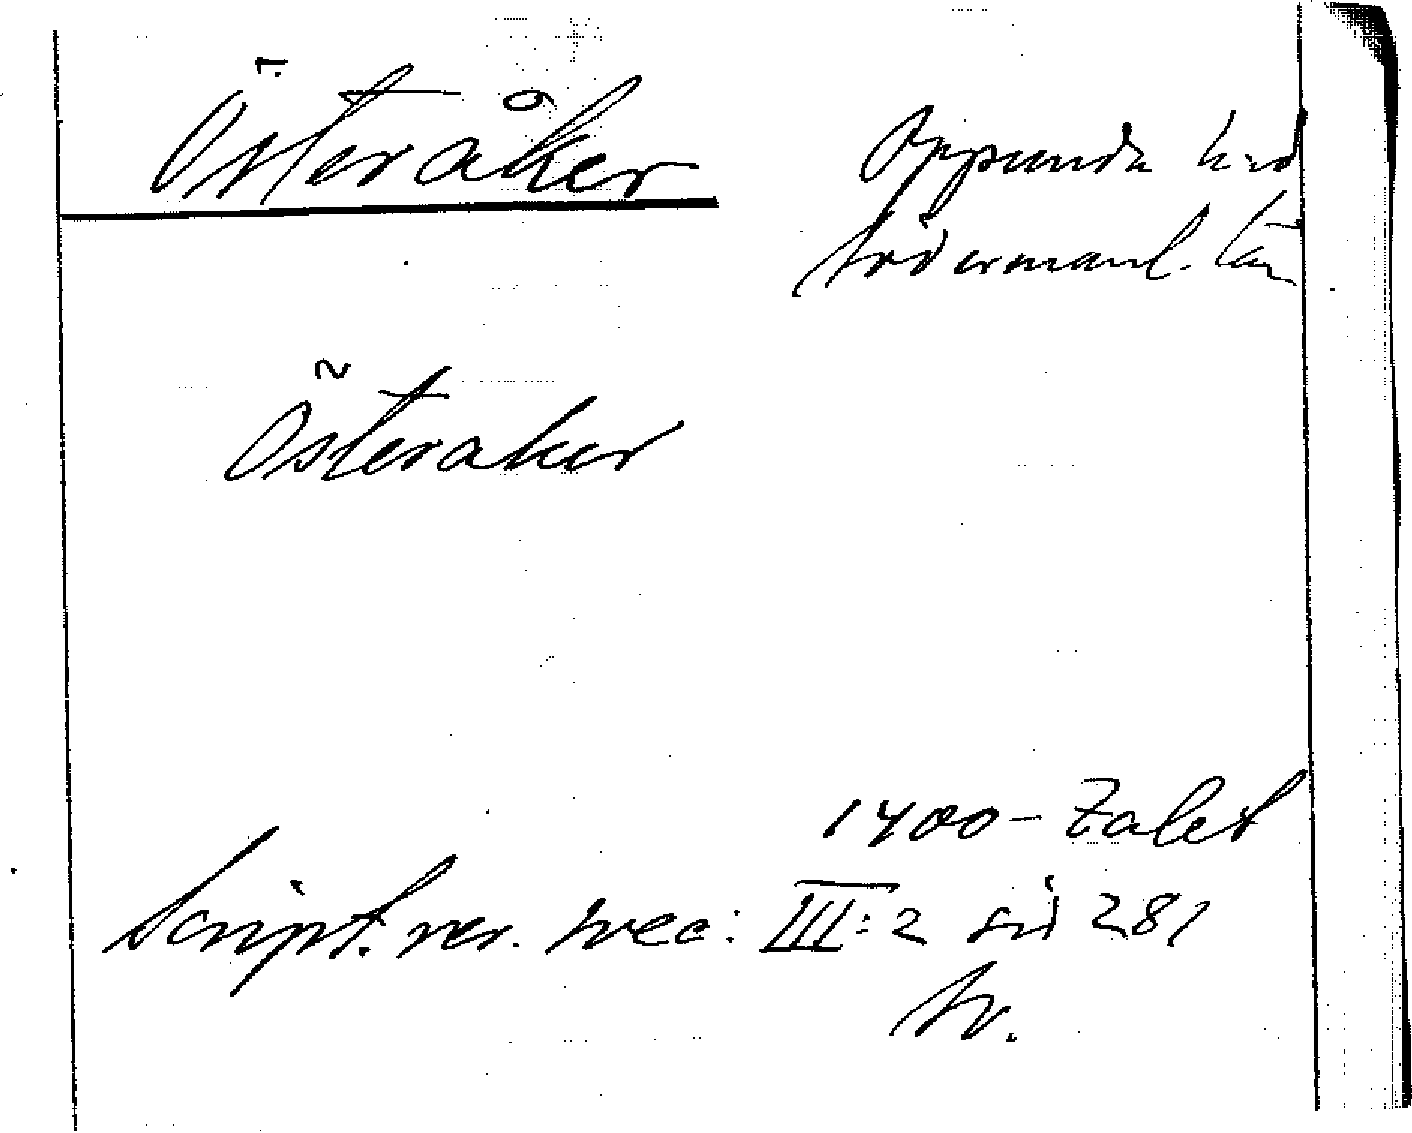 Österåker
Oppunda hrd
Södermanl. län
Österaker
1400-talet
Script. rer. svec: III:2 sid 281
Sv.